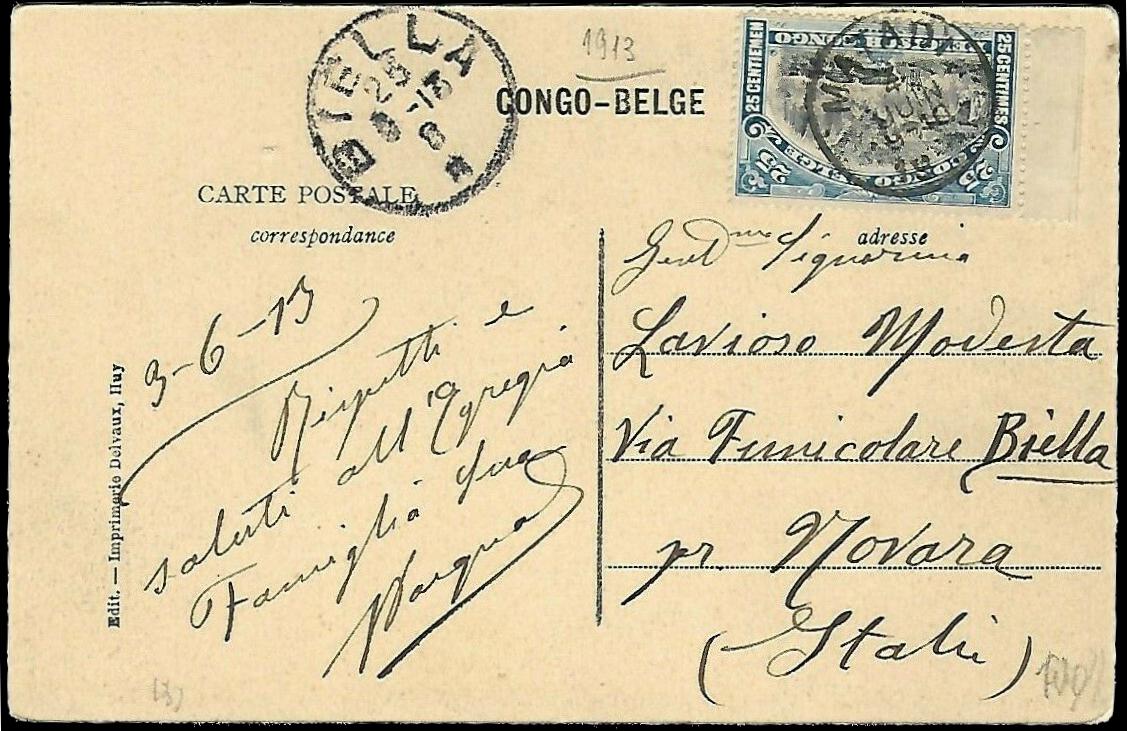 BIELLA
1913
CONGO-BELGE
25 CENTIEMEN
BELGISCH CONGO
25 CENTIMES
CONGO BELGE
25
25
MATADI
JUIN
CARTE POSTALE
correspondance
adresse
3-6-13
Rispetti e
saluti all'Egregia
Famiglia sua
Gent ma Signorina
Lavioso Modesta
Via Funicolare Biella
pr. Novara
(Italie)
Edit. — Imprimerie Delvaux, Huy